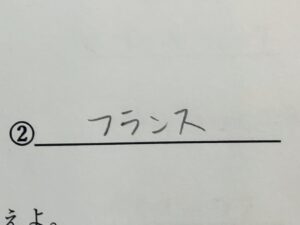 ② フランス
えよ。